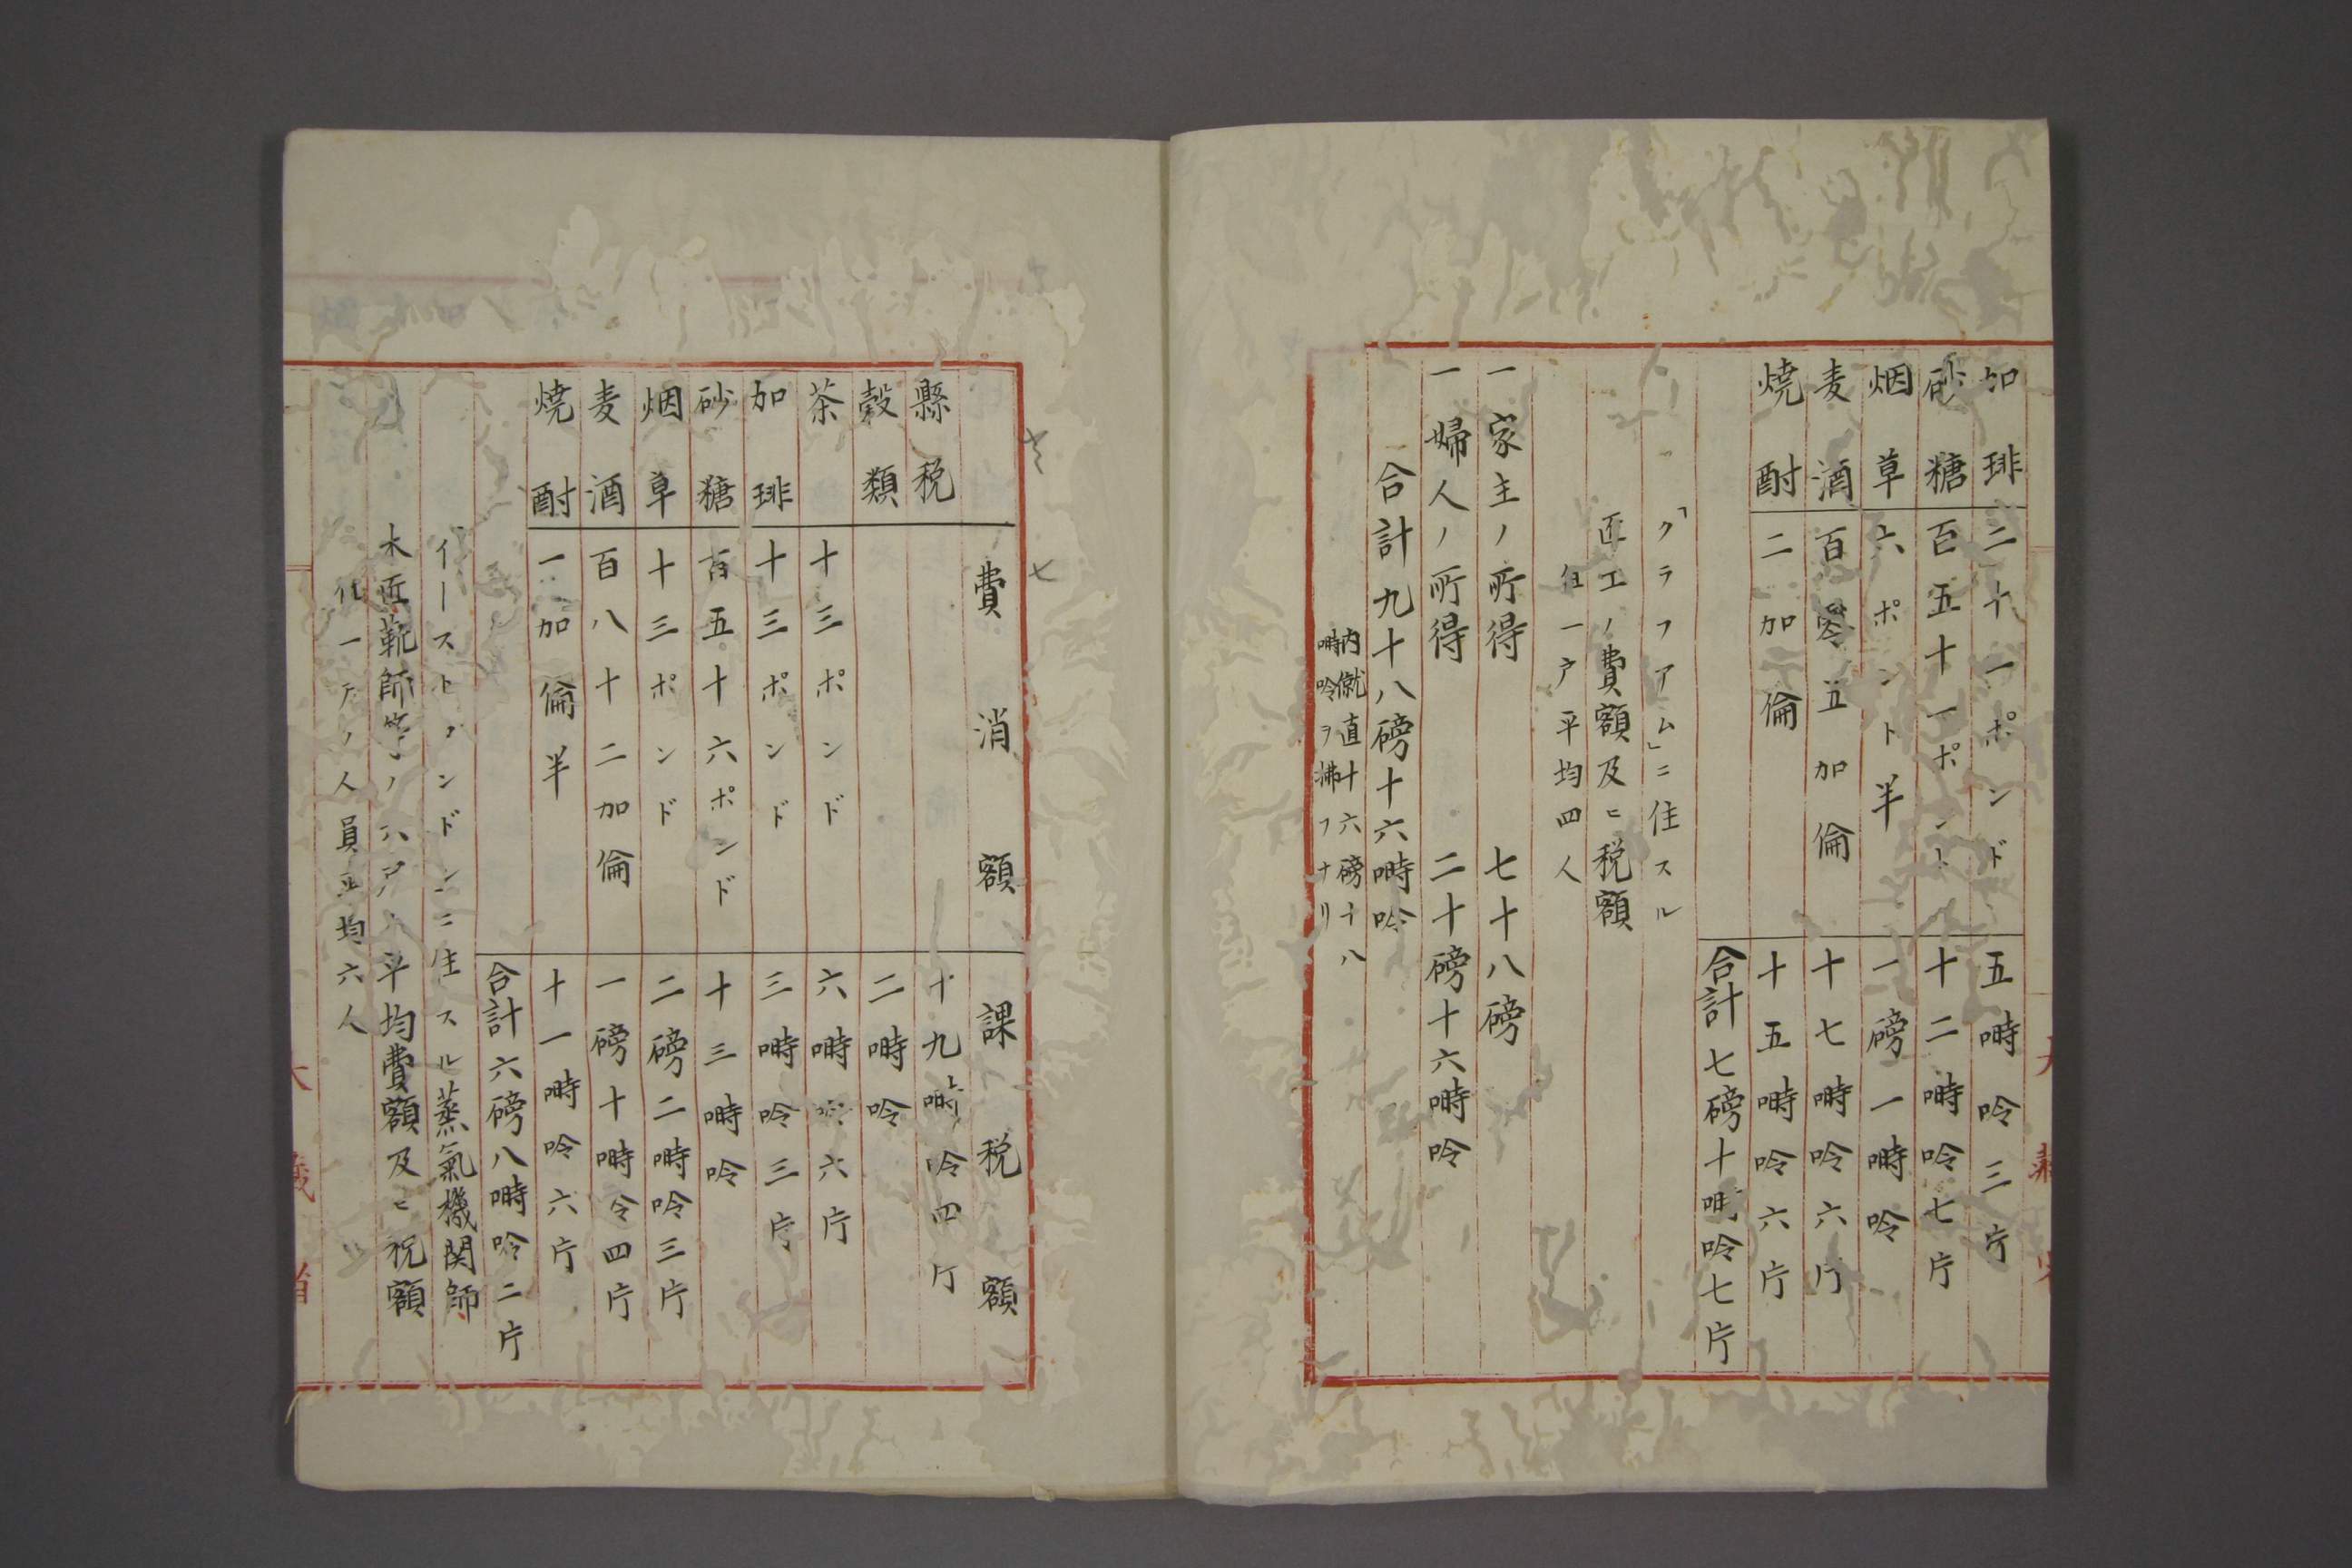 加琲 二十一ポンド 五喃呤三片
砂糖 百五十一ポント 十二喃呤七片
烟草 六ポント半 一磅一喃呤
麦酒 百零五加倫 十七喃呤六片
焼酎 二加倫 十五喃呤六片
合計七磅十喃呤七片
「クラフアム」ニ住スル
匠工ノ費額及ヒ税額
但一戸平均四人
一家主ノ所得 七十八磅
一婦人ノ所得 二十磅十六喃呤
合計九十八磅十六喃呤
内僦直十六磅十八
喃呤ヲ拂フナリ
費消額 課税額
縣税 十九喃呤四片
穀類 二喃呤
茶 十三ポンド 六喃呤六片
加琲 十三ポンド 三喃呤三片
砂糖 百五十六ポンド 十三喃呤
烟草 十三ポンド 二磅二喃呤三片
麦酒 百八十二加倫 一磅十喃令四片
焼酎 一加倫半 十一喃呤六片
合計六磅八喃呤二片
イーストロンドン」ニ住スル蒸氣機関師
木匠靴師等ノ六戸ノ平均費額及ヒ税額
但一戸ノ人員平均六人
大藏省